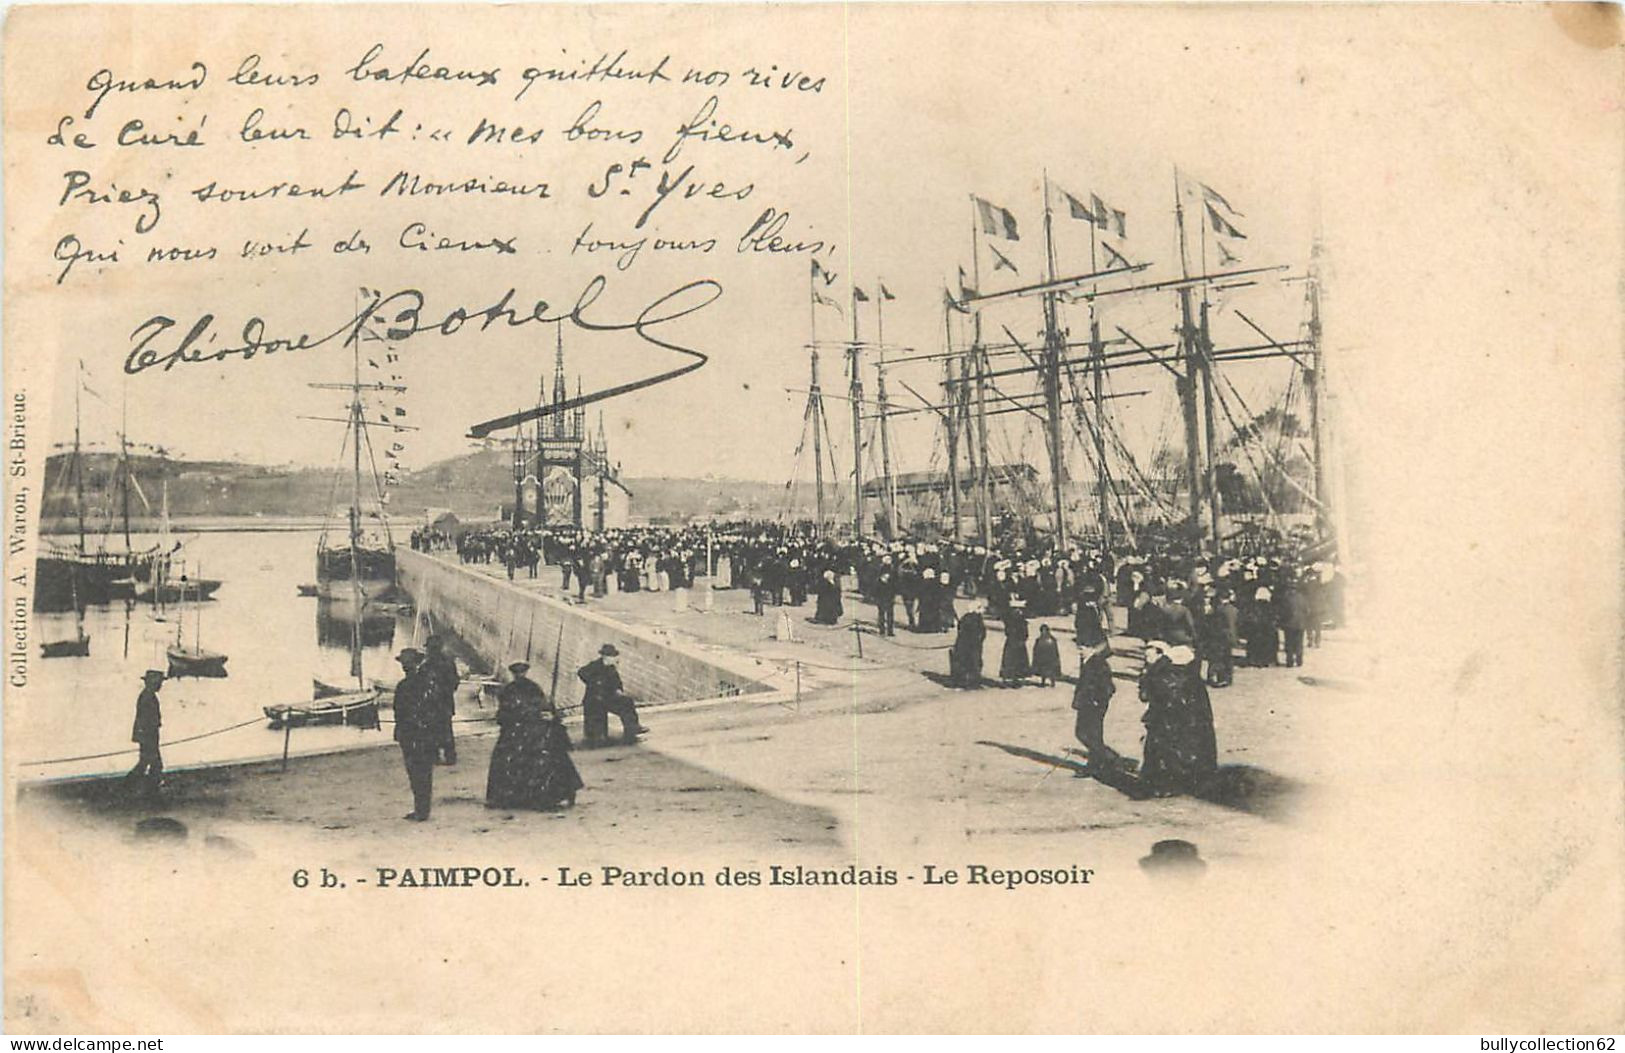 Quand leurs bateaux quittent nos rives
Le Curé leur dit : " Mes bons fieux,
Priez souvent Monsieur St. Yves
Qui nous voit des Cieux toujours bleus.
Théodore Botrel
Collection A. Waron, St-Brieuc.
6 b. - PAIMPOL. - Le Pardon des Islandais - Le Reposoir
delcampe.net
bullycollection62